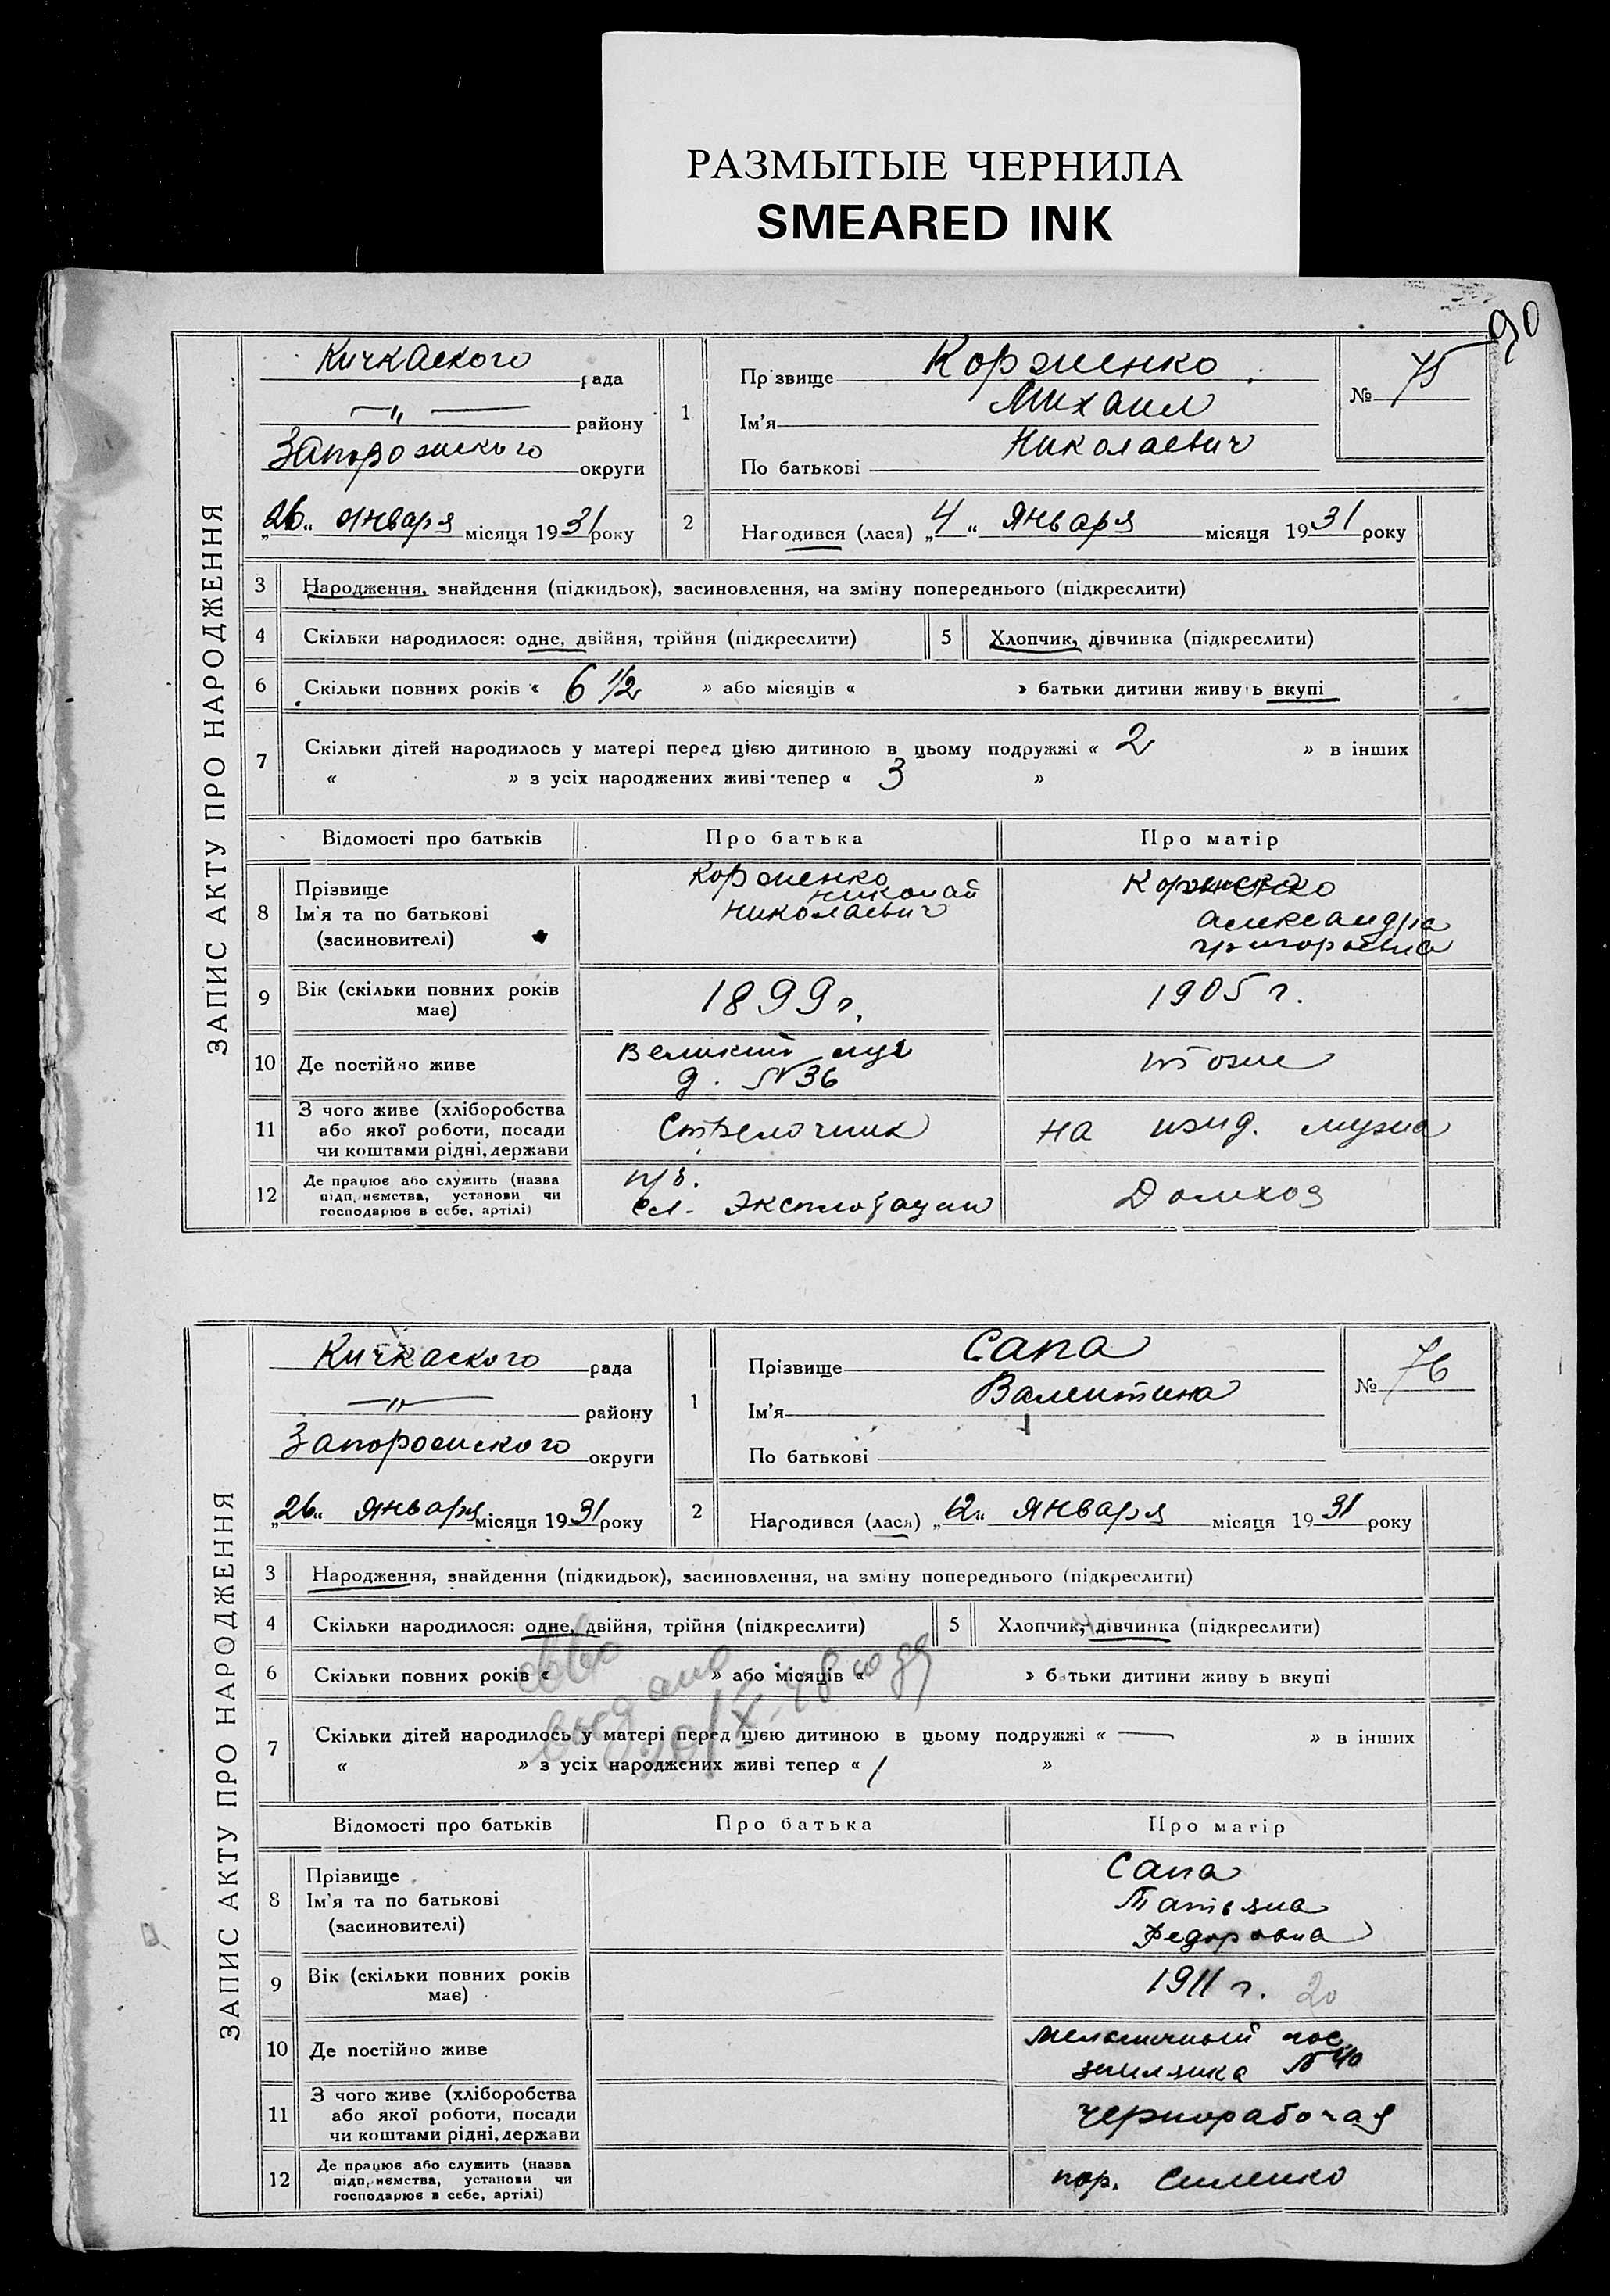 РАЗМЫТЫЕ ЧЕРНИЛА
SMEARED INK
90
ЗАПИС АКТУ ПРО НАРОДЖЕННЯ
Кичкаского рада
—„— району
Запорожского округи
„26“ января місяця 1931 року
1
Прізвище Корженко
Ім'я Михаил
По батькові Николаевич
№ 75
2
Народився (лася) „4“ Января місяця 1931 року
3 Народження, знайдення (підкидьок), засиновлення, на зміну попереднього (підкреслити)
4 Скільки народилося: одне, двійня, трійня (підкреслити) 5 Хлопчик, дівчинка (підкреслити)
6 Скільки повних років « 6 1/2 » або місяців « » батьки дитини живуть вкупі
7 Скільки дітей народилось у матері перед цією дитиною в цьому подружжі « 2 » в інших
« » з усіх народжених живі тепер « 3 »
Відомості про батьків Про батька Про матір
8 Прізвище Ім'я та по батькові (засновителі)
Корженко Николай Николаевич
Корженко Александра Григорьевна
9 Вік (скільки повних років має) 1899 г. 1905 г.
10 Де постійно живе Великий луг д. №36 тоже
11 З чого живе (хліборобства або якої роботи, посади чи коштами рідні, держави Стрелочник на ижд. мужа
12 Де працює або служить (назва підприємства, установи чи господарює в себе, артілі) сл. Эксплотации Домхоз
ЗАПИС АКТУ ПРО НАРОДЖЕННЯ
Кичкаского рада
—„— району
Запорожского округи
„26“ Января місяця 1931 року
1
Прізвище Сапа
Ім'я Валентина
По батькові
№ 76
2
Народився (лася) „12“ Января місяця 1931 року
3 Народження, знайдення (підкидьок), засиновлення, на зміну попереднього (підкреслити)
4 Скільки народилося: одне, двійня, трійня (підкреслити) 5 Хлопчик, дівчинка (підкреслити)
6 Скільки повних років « » або місяців « » батьки дитини живуть вкупі
7 Скільки дітей народилось у матері перед цією дитиною в цьому подружжі « — » в інших
« » з усіх народжених живі тепер « 1 »
выдано
48 года
Відомості про батьків Про батька Про матір
8 Прізвище Ім'я та по батькові (засиновителі)
Сапа
Татьяна
Федоровна
9 Вік (скільки повних років має) 1911 г. 20
10 Де постійно живе мельничный пос. землянка №40
11 З чого живе (хліборобства або якої роботи, посади чи коштами рідні, держави чернорабочая
12 Де працює або служить (назва підприємства, установи чи господарює в себе, артілі)